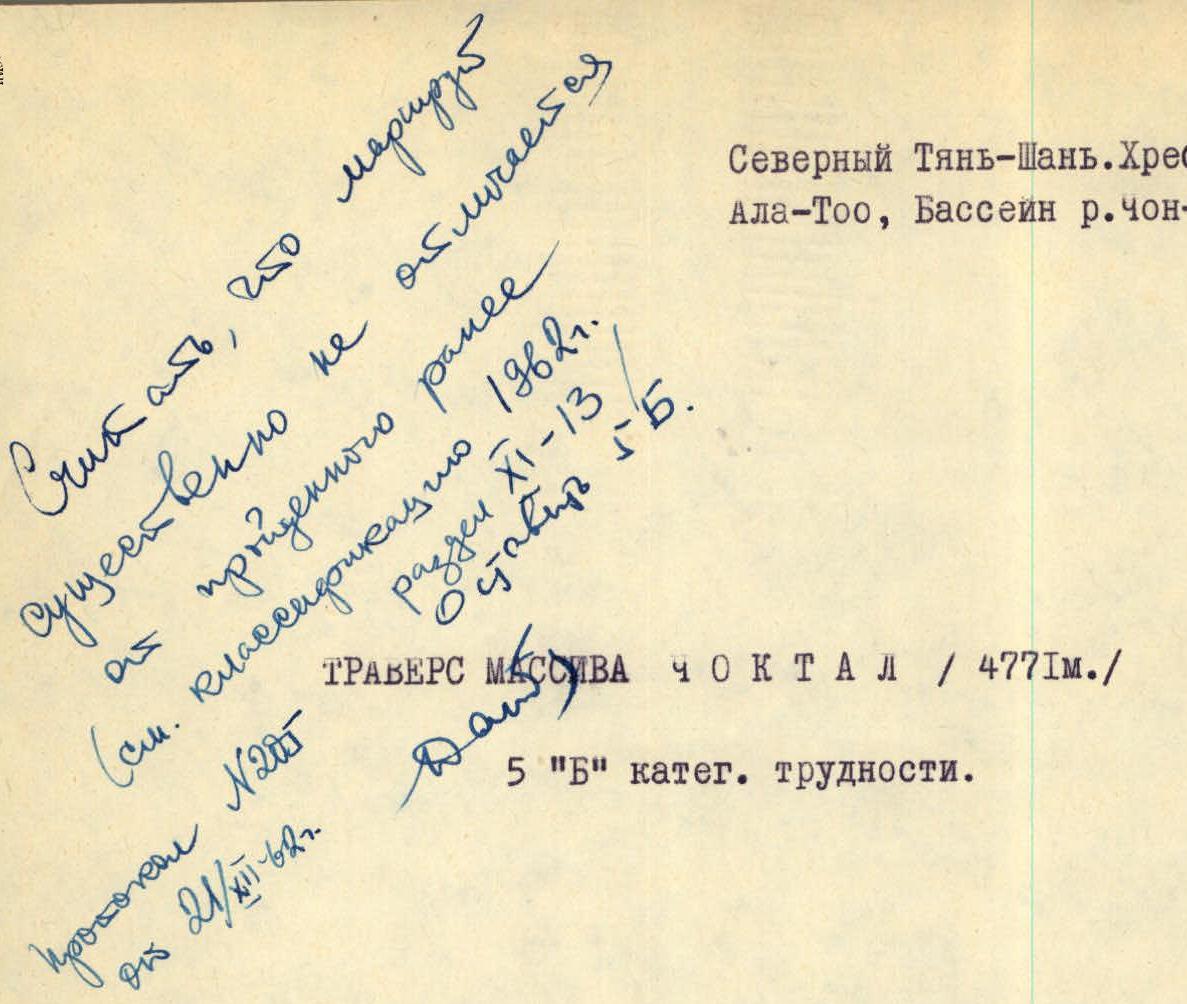 Считать, что маршрут
существенно не отличается
от пройденного ранее
(см. классификацию 1962г.
раздел XI-13/
Оставить 5Б.
протокол
от 21/XII-62г.
Северный Тянь-Шань.Хреб
Ала-Тоо, Бассейн р.Чон-
ТРАВЕРС МАССИВА Ч О К Т А Л / 477Iм./
5 "Б" катег. трудности.